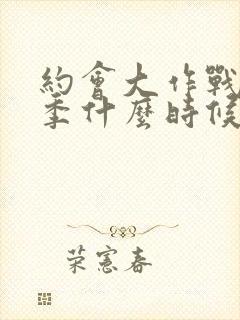 約會大作戰
季什麼時候
荣憲春